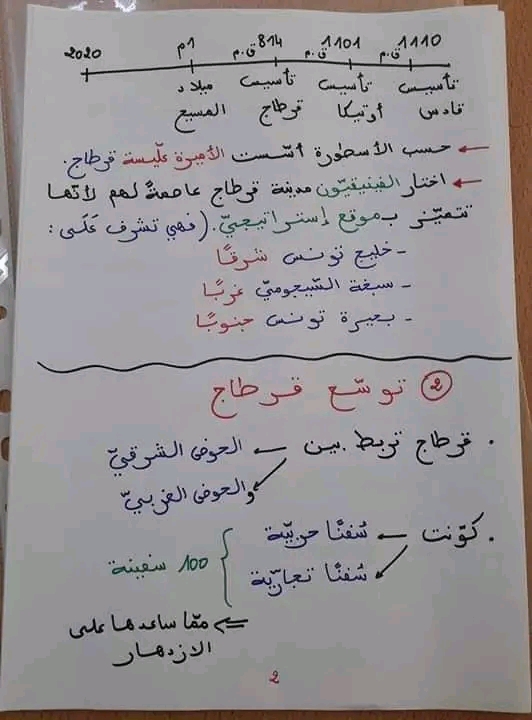 1110 ق.م 1101 ق.م 814 ق.م 1م 2020
تأسيس تأسيس تأسيس ميلاد
قادس أوتيكا قرطاج المسيح
← حسب الأسطورة أسّست الأميرة علّيسة قرطاج.
← اختار الفينيقيّون مدينة قرطاج عاصمةً لهم لأنّها
تتميّز بـموقع إستراتيجيّ. (فهي تشرف عَلَى :
- خليج تونس شرقًا
- سبخة السّيجوميّ غربًا
- بحيرة تونس جنوبًا
② توسّع قرطاج
. قرطاج تربط بين ← الحوض الشرقيّ
والحوض الغربيّ
. كوّنت ← سُفنًا حربيّة
سُفنًا تجاريّة
} 100 سفينة
⇐ ممّا ساعدها على
الازدهار
2